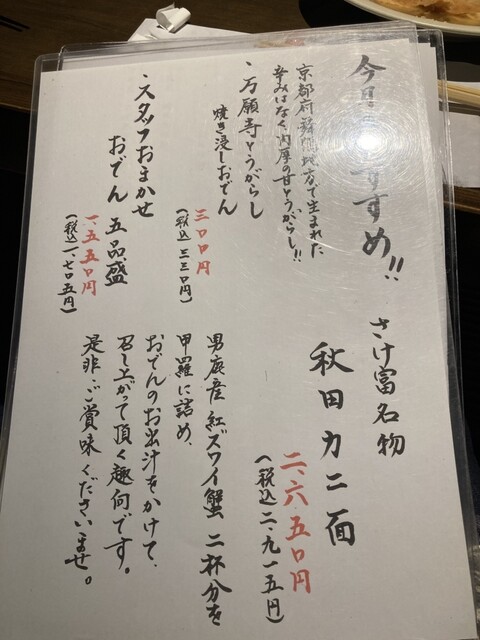 今月 すすめ!!
京都府舞鶴地方で生まれた
辛みはなく肉厚の甘とうがらし!!
・万願寺とうがらし
焼き浸しおでん
三〇〇円
(税込 三三〇円)
・スタッフおまかせ
おでん 五品盛
一、五五〇円
(税込一、七〇五円)
さけ富名物
秋田カニ面
二、六五〇円
(税込二、九一五円)
男鹿産 紅ズワイ蟹 二杯分を
甲羅に詰め、
おでんのお出汁をかけて、
召し上がって頂く趣向です。
是非、ご賞味くださいませ。